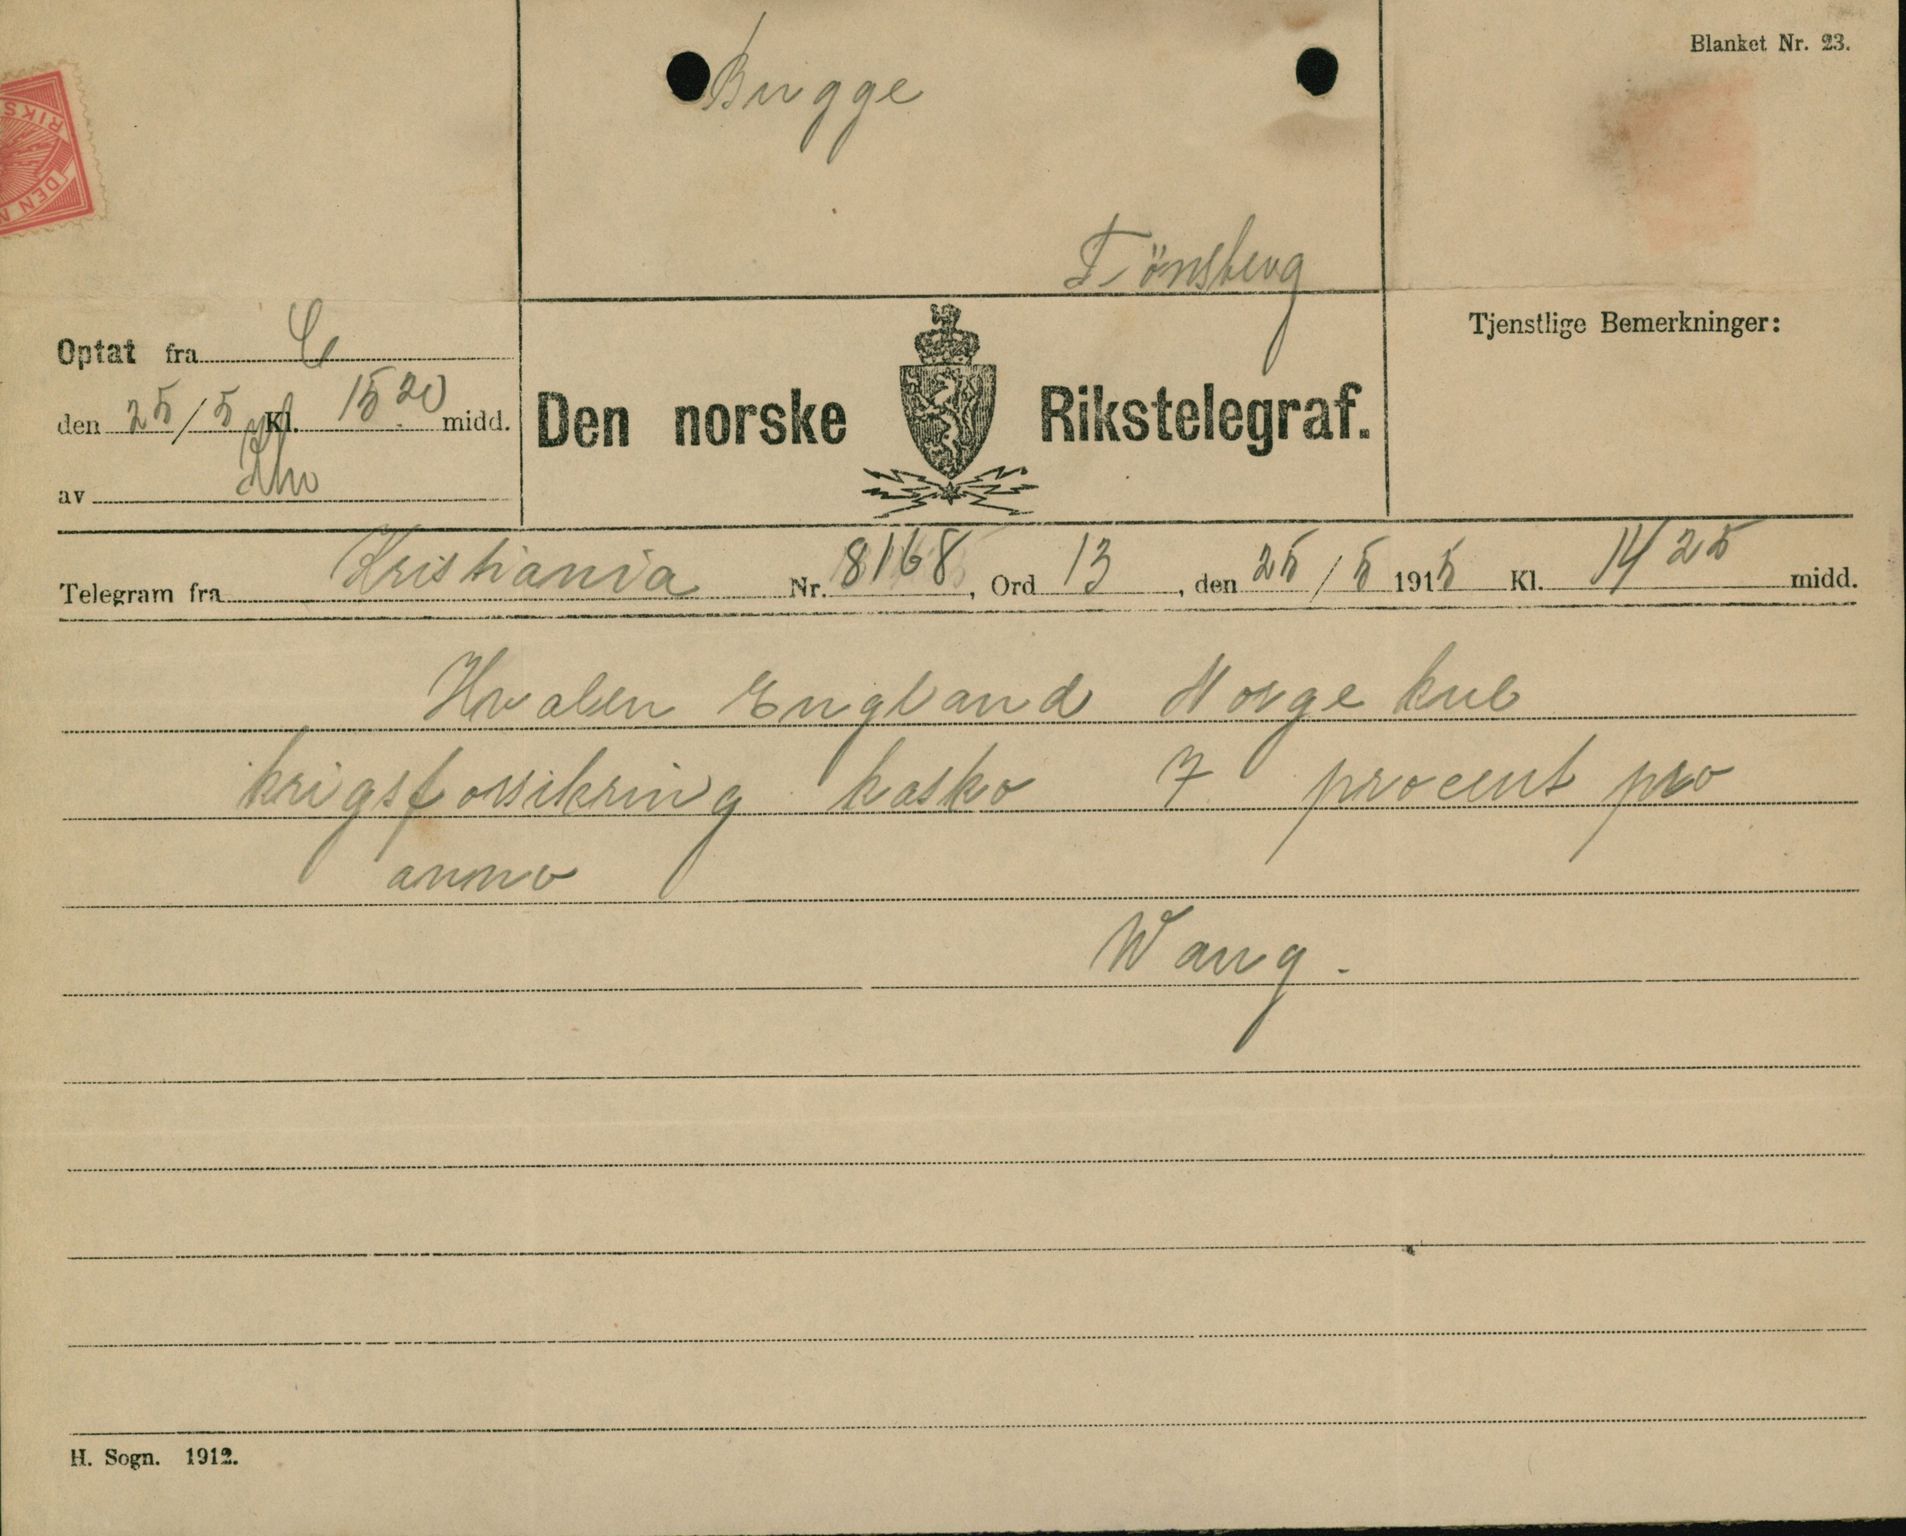 Blanket Nr. 23.
Bugge
Tönsberg
RIKS
DEN N
Optat fra C
den 25/5 Kl. 15 20 midd.
av
Den norske Rikstelegraf.
Tjenstlige Bemerkninger:
Telegram fra Kristiania Nr. 8168, Ord 13, den 25/5 1915 Kl. 14 25 midd.
Hvalen England Norge kul
krigsforsikring kasko 7 procent pro
anno
Wang.
H. Sogn. 1912.